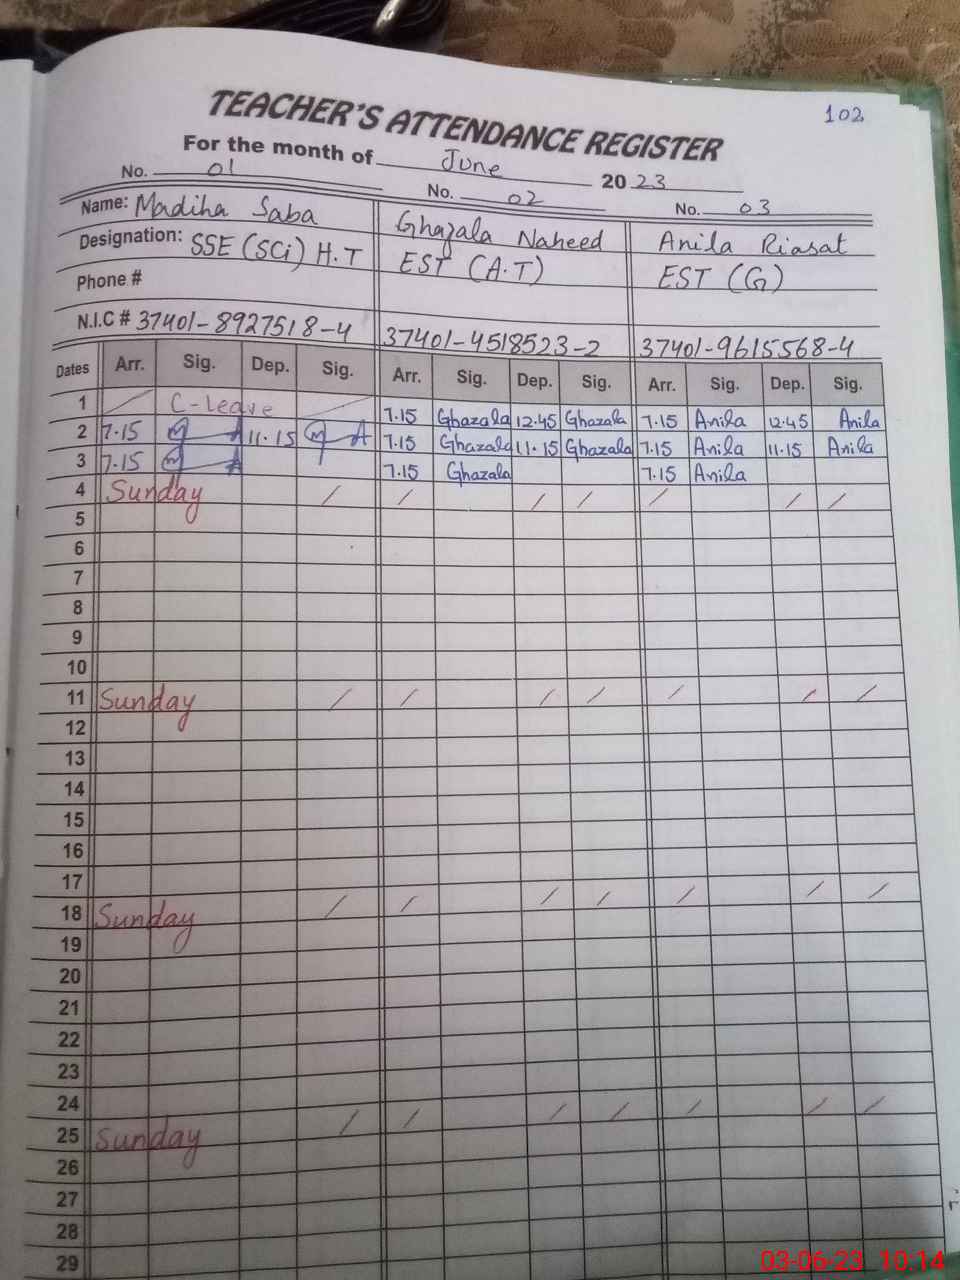 102
TEACHER'S ATTENDANCE REGISTER
For the month of June 2023
No. 01 No. 02 No. 03
Name: Madiha Saba Ghazala Naheed Anila Riasat
Designation: SSE (SCi) H.T EST (A.T) EST (G)
Phone #
N.I.C # 37401-8927518-4 37401-4518523-2 37401-9615568-4
Dates Arr. Sig. Dep. Sig. Arr. Sig. Dep. Sig. Arr. Sig. Dep. Sig.
1 C-Leave 7.15 Ghazala 12.45 Ghazala 7.15 Anila 12.45 Anila
2 7.15 11.15 7.15 Ghazala 11.15 Ghazala 7.15 Anila 11.15 Anila
3 7.15 7.15 Ghazala 7.15 Anila
4 Sunday
5
6
7
8
9
10
11 Sunday
12
13
14
15
16
17
18 Sunday
19
20
21
22
23
24
25 Sunday
26
27
28
29
03-06-23 10:14